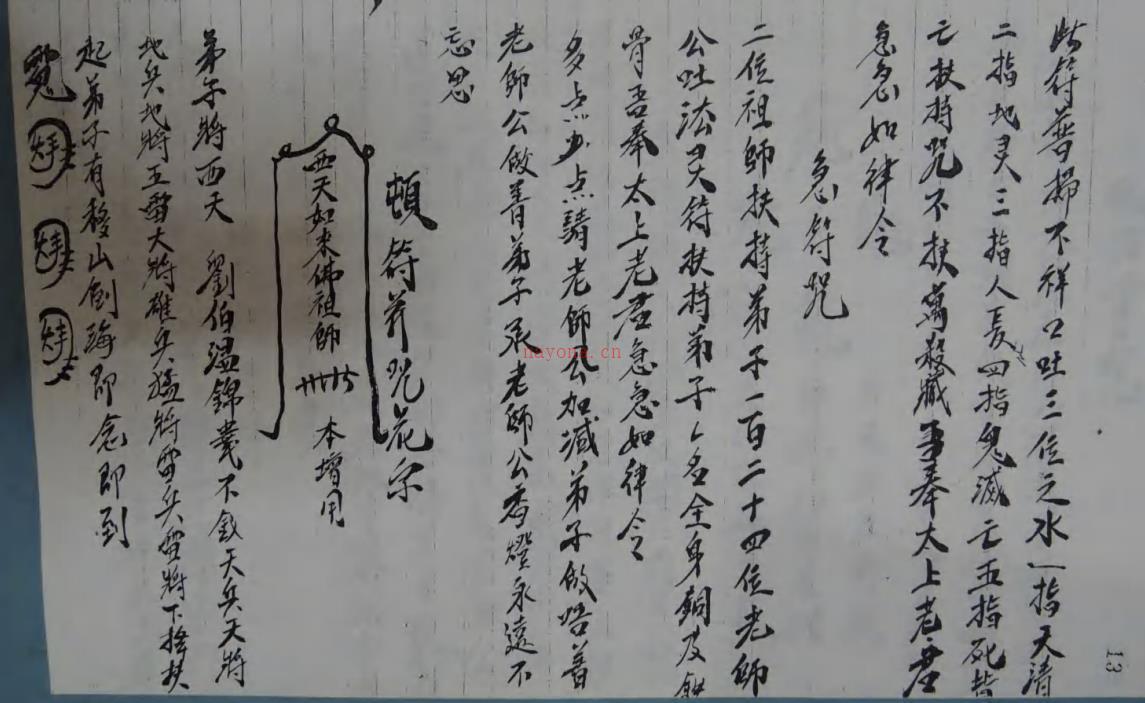 此符普掃不祥口吐三位之水一指天清
二指地灵三指人長四指鬼滅亡五指死
亡扶持咒不扶奉太上老君
急急如律令
急符咒
二位祖師扶持弟子一百二十四位老師
公吐法灵符扶持弟子名全身銅皮鉄
骨吾奉太上老君急急如律令
多点少点請老師公加減弟子做
老師公做善弟子承老師公香燈永遠不
忘恩
頓符并咒
西天如来佛祖師
本增用
弟子將西天 劉伯温錦不天兵天將
地兵地將五雷大將雄兵猛將雷兵雷將下扶
起弟子有移山倒海即念即到
13
nayona.cn